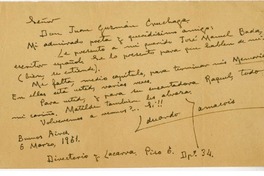 Señor
Don Juan Guzmán Cruchaga
Mi admirado poeta y queridísimo amigo:
Le presento a mi querido José Manuel Bada,
escritor español. Se lo presento para que hablen de mí.
(bien, se entiende).
Me falta medio capítulo para terminar mis Memorias
En ellas está usted, varias veces.
Para usted, y para su encantadora Raquel, todo
mi cariño. Matilde también los
Volveremos a vernos?
Eduardo Zamacois
Buenos Aires
6 Marzo, 1961.
Directorio y Lacarra, Piso 6. Dpt. 34.